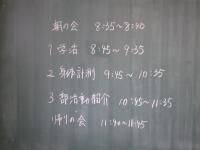 朝の会 8:35～8:40
1 学活 8:45～9:35
2 身体計測 9:45～10:35
3 部活動紹介 10:45～11:35
帰りの会 11:40～11:45